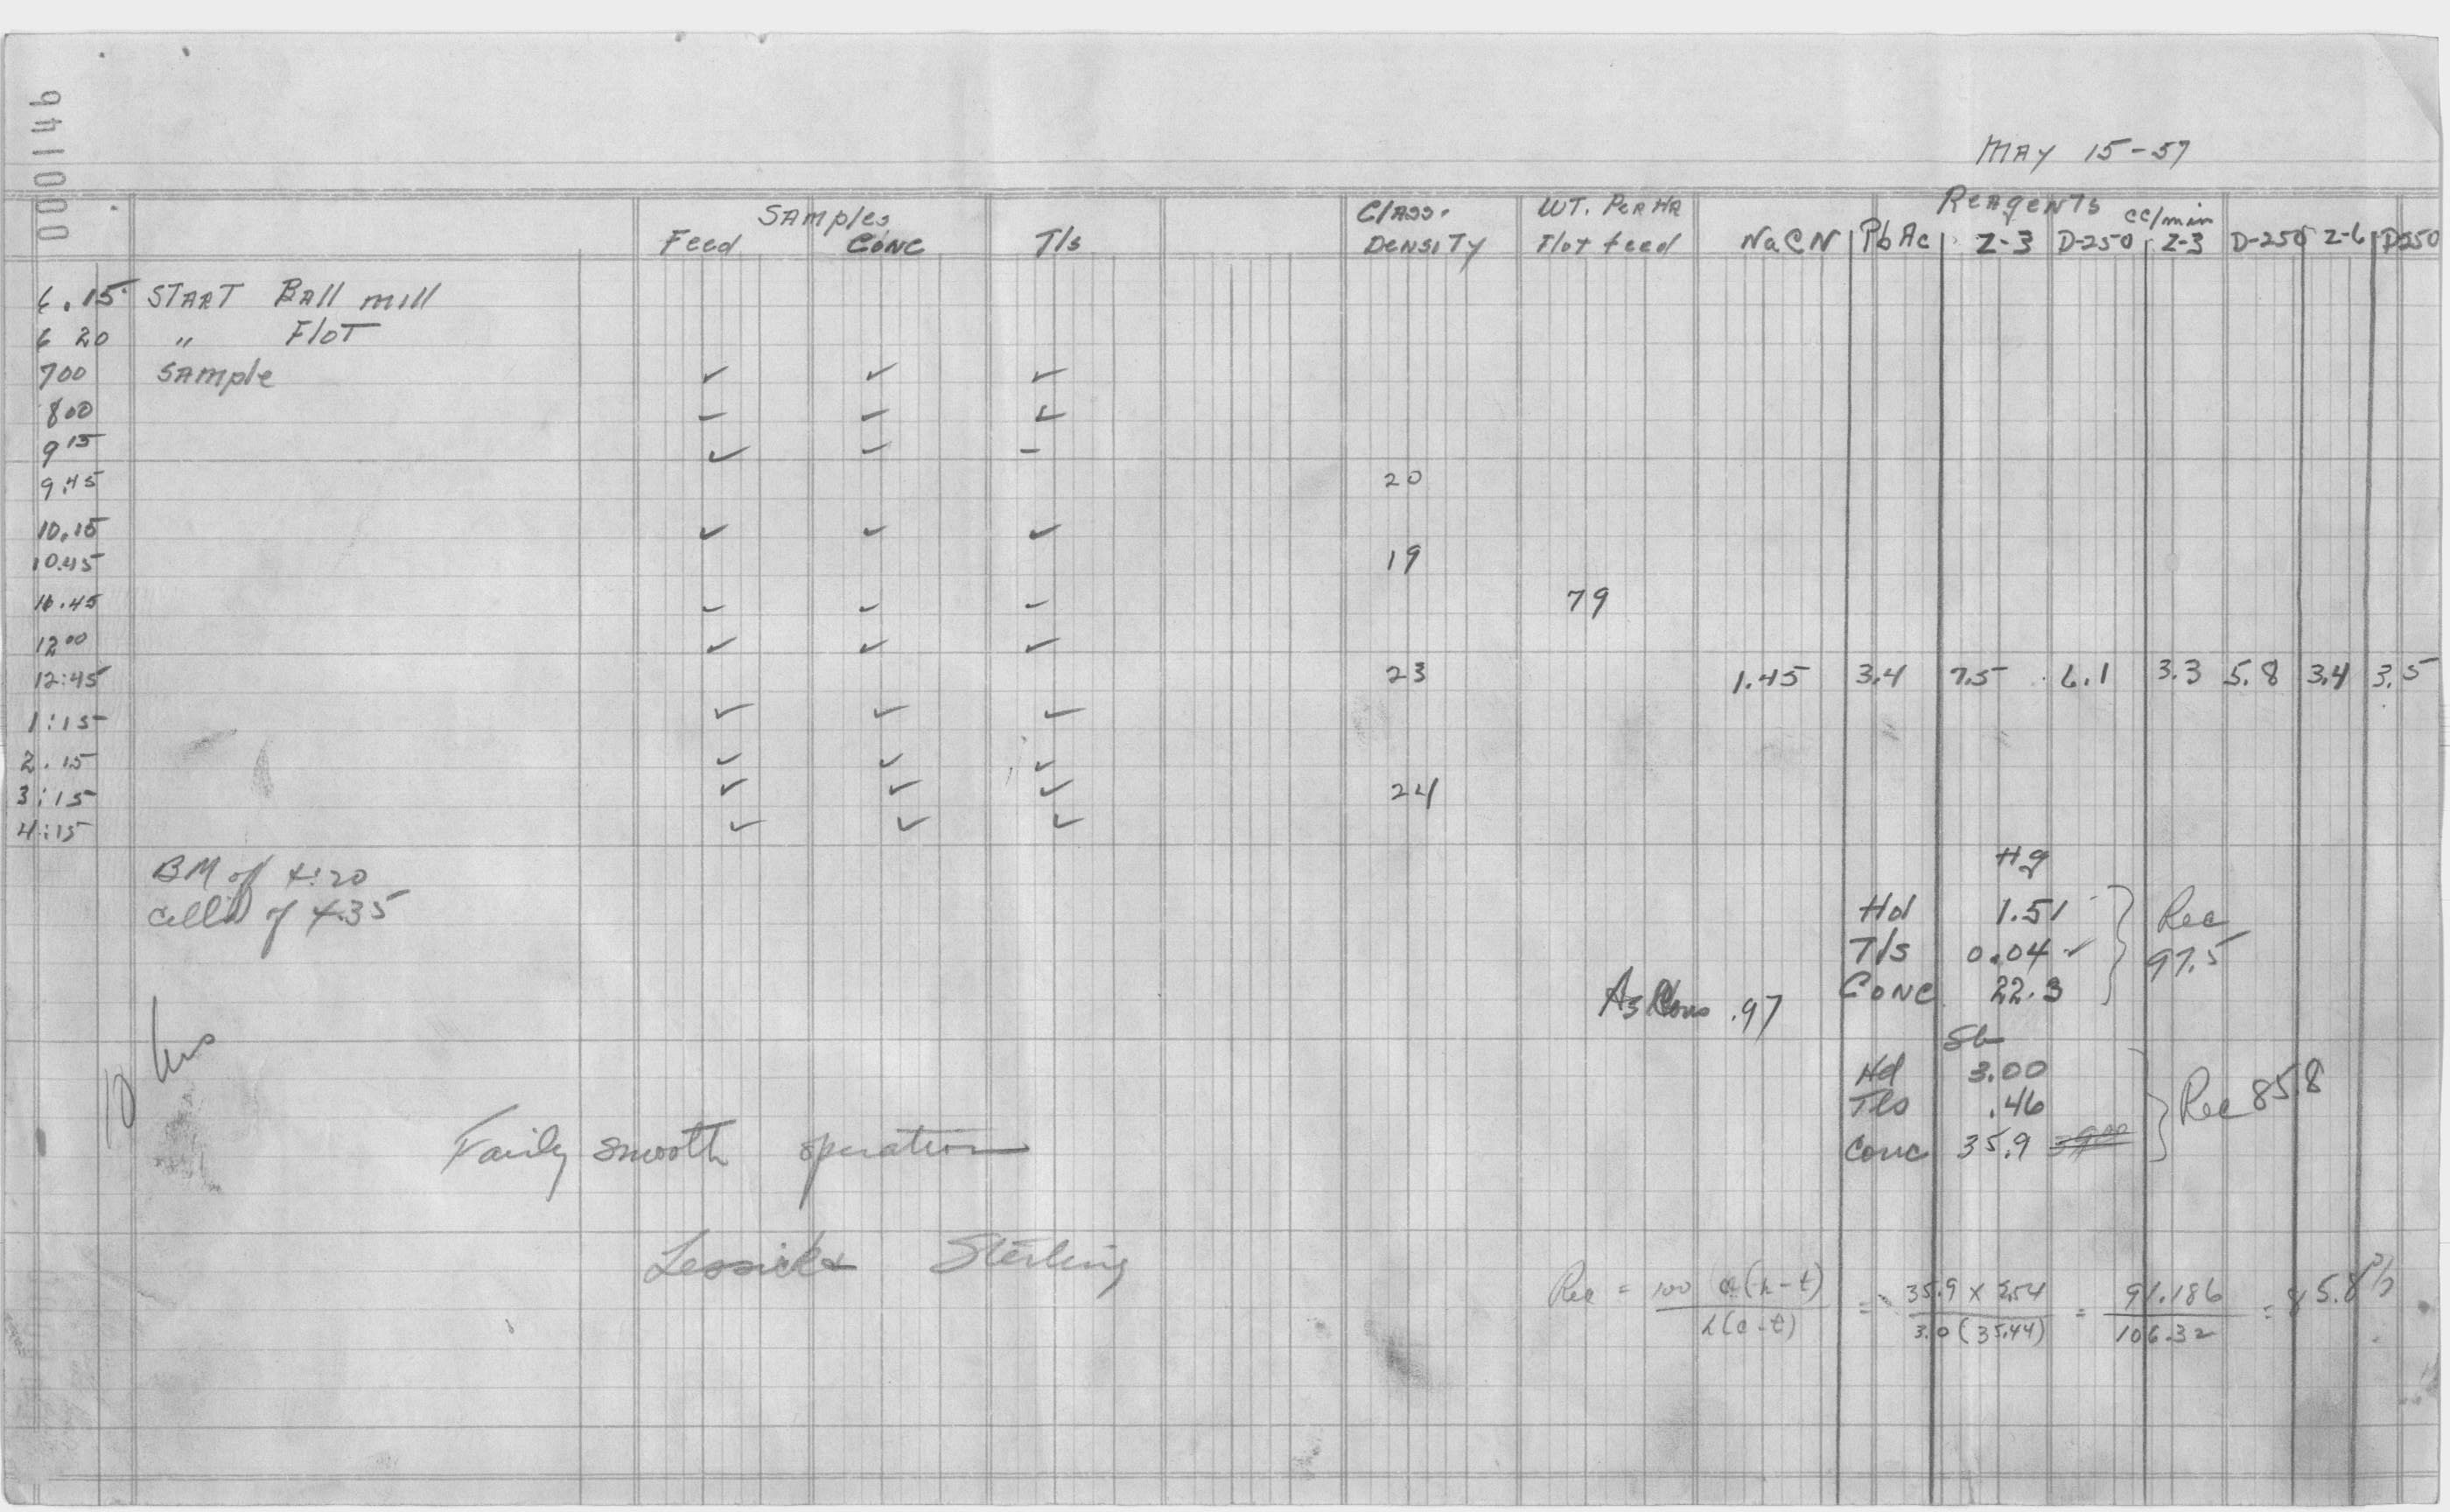 000146
MAY 15-57
Samples Class. WT. Per Hr Reagents cc/min
Feed Conc T/s Density Flot feed NaCN PbAc Z-3 D-250 Z-3 D-250 Z-6 D250
6.15 START Ball mill
6 20 " Flot
700 Sample ✓ ✓ ✓
800 ✓ ✓ ✓
9 15 ✓ ✓ –
9.45 20
10.15 ✓ ✓ ✓
10.45 19
11.45 ✓ ✓ ✓ 79
12 00 ✓ ✓ ✓
12:45 23 1.45 3.4 7.5 6.1 3.3 5.8 3.4 3.5
1:15 ✓ ✓ ✓
2.15 ✓ ✓ ✓
3:15 ✓ ✓ ✓ 24
4:15 ✓ ✓ ✓
BM off 4:20
Cells off 4.35
Hg
Hd 1.51
T/s 0.04 ✓
Conc 22.3
Rec
97.5
As Conc .97
Sb
Hd 3.00
Tls .46
Conc 35.9
Rec 85.8
10 hrs
Fairly smooth operation
Sterling
Rec = 100 c(h-t) / h(c-t) = 35.9 x 2.54 / 3.0 (35.44) = 91.186 / 106.32 = 85.8%